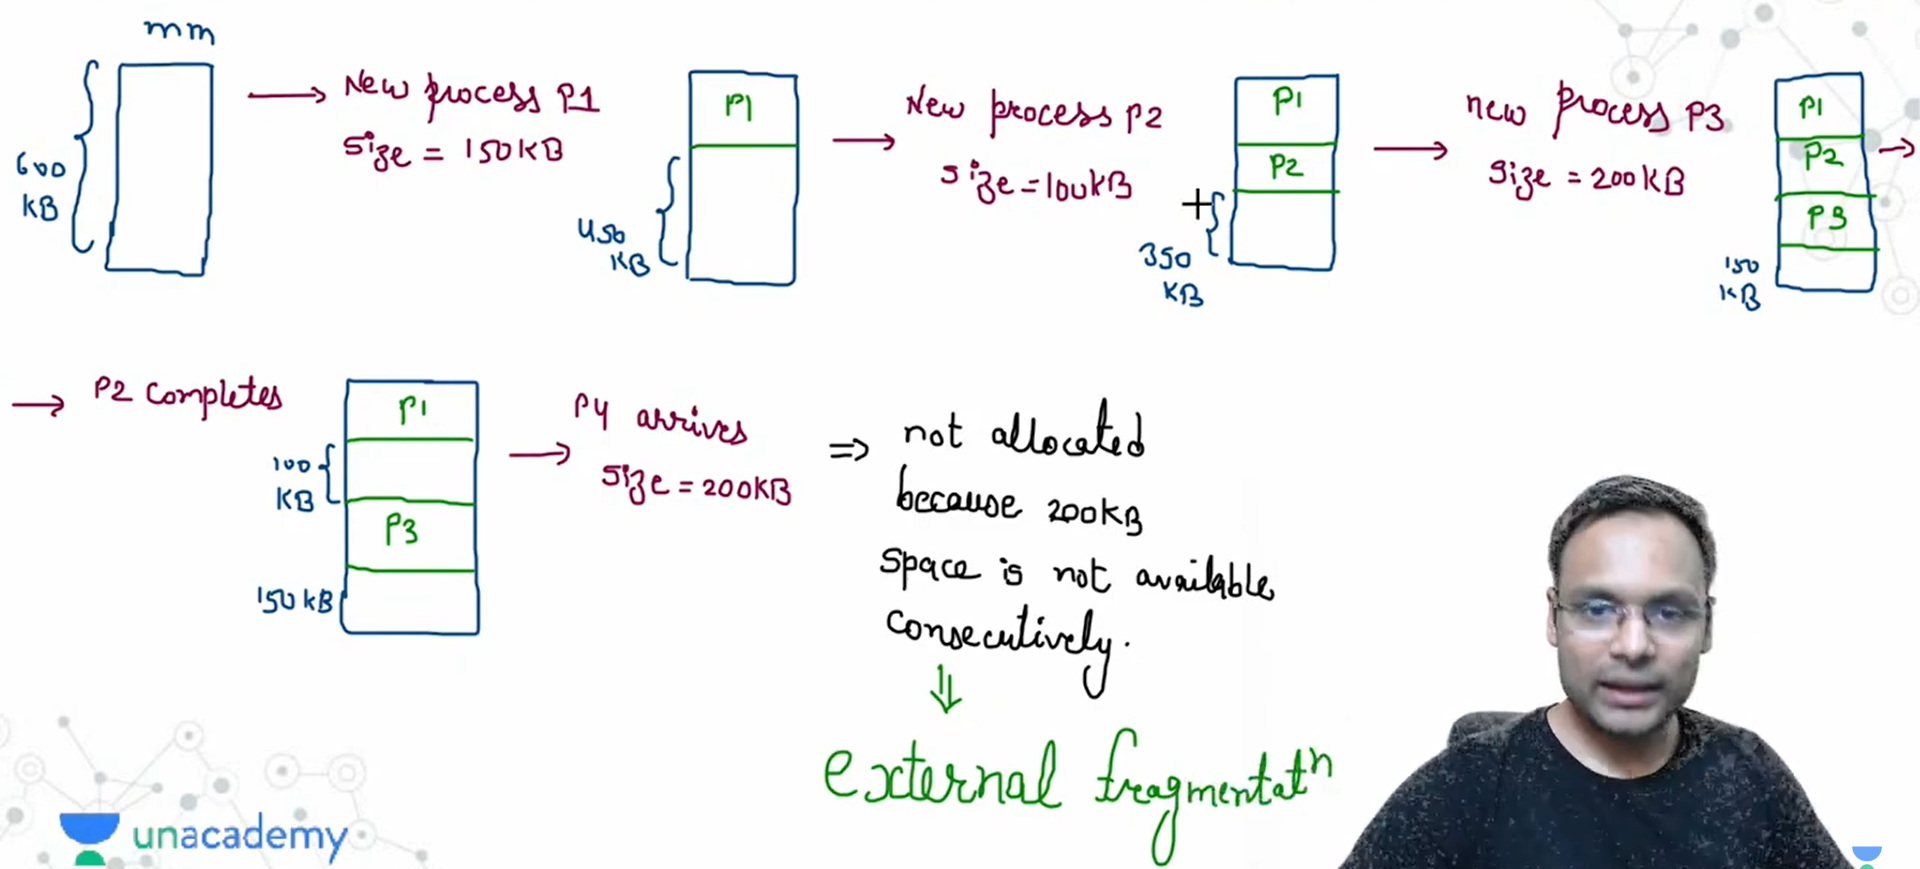 mm
600
KB
New process P1
size = 150KB
P1
450
KB
New process P2
size = 100KB
P1
P2
350
KB
new process P3
size = 200KB
P1
P2
P3
150
KB
P2 completes
P1
100
KB
P3
150 KB
P4 arrives
size = 200KB
⇒ not allocated
because 200KB
space is not available
consecutively.
external fragmentatⁿ
unacademy